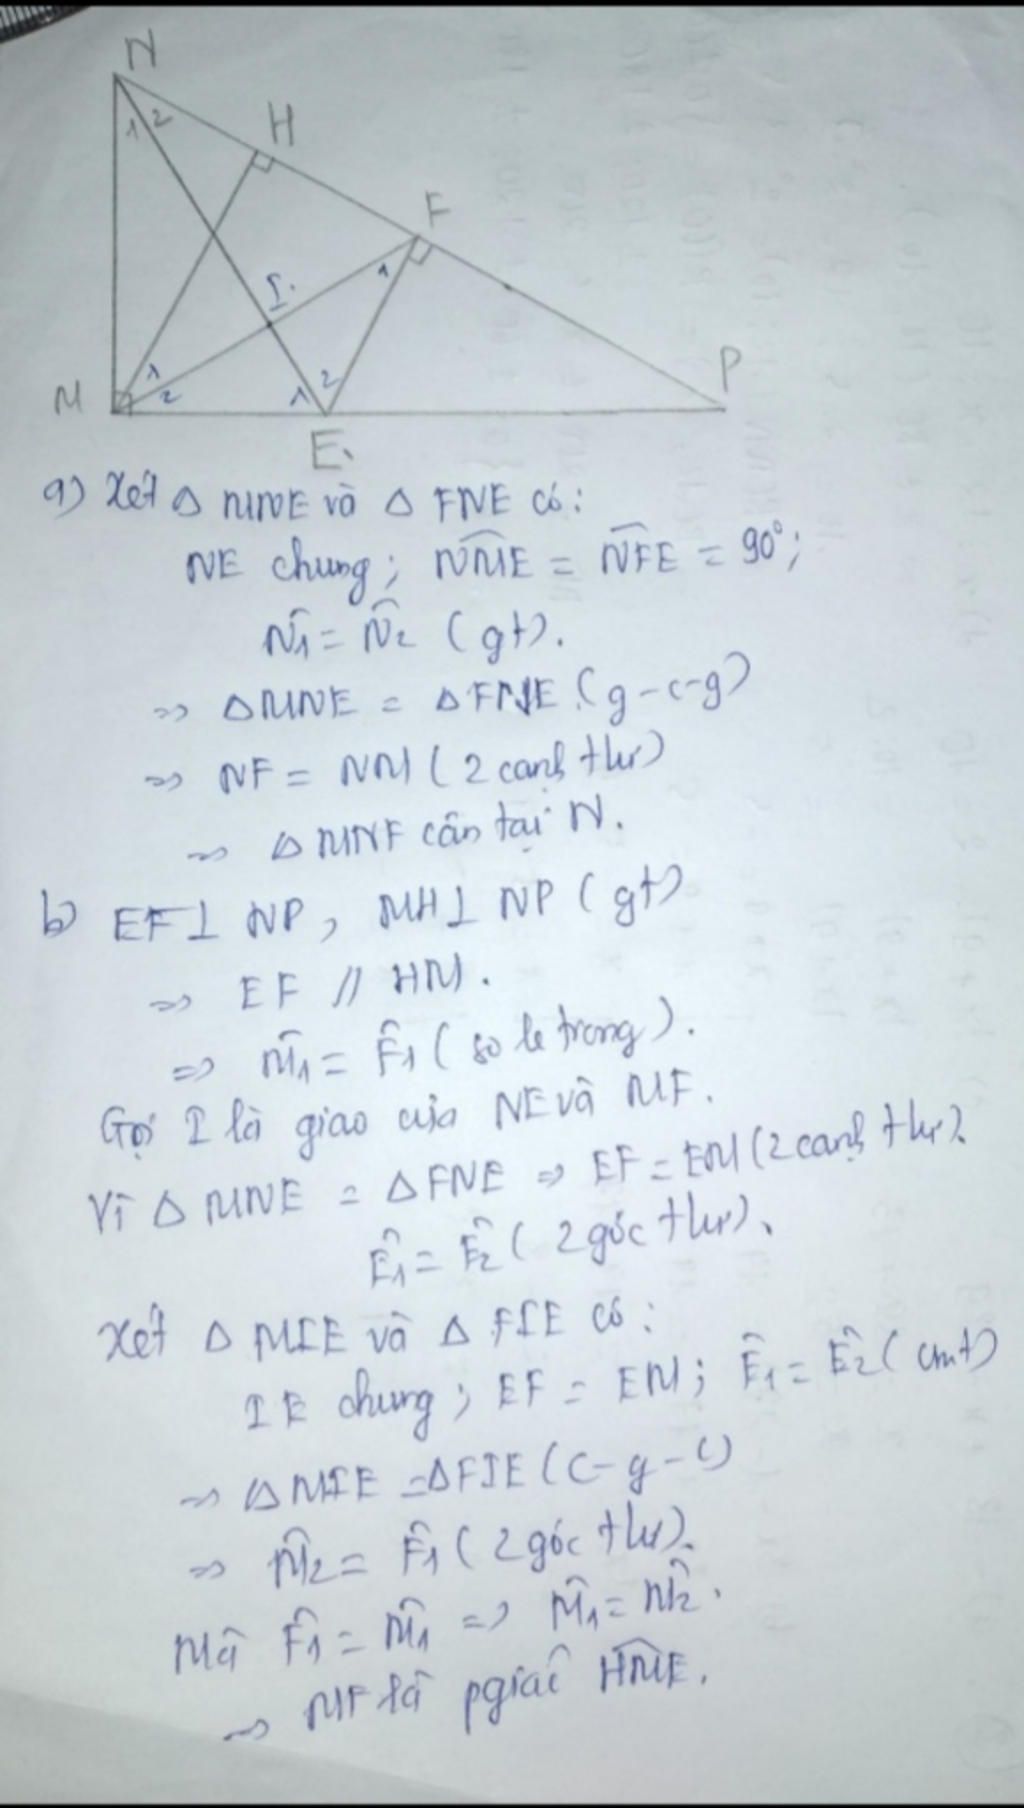 N
1 2
H
F
I
1
P
1
2
M
1 2
E
a) Xét △ MNE và △ FNE có:
NE chung; NME^ = NFE^ = 90°;
N̂1 = N̂2 (gt).
=> △MNE = △FNE (g-c-g)
=> NF = NM (2 cạnh tư)
=> △MNF cân tại N.
b EF⊥ NP, MH⊥ NP (gt)
=> EF // HM.
=> M̂1 = F̂1 (so le trong).
Gọi I là giao của NE và MF.
Vì △ MNE = △FNE => EF = EM (2 cạnh tư).
Ê1 = Ê2 (2 góc tư).
Xét △ MIE và △ FIE có:
IE chung; EF = EM; Ê1 = Ê2 (cmt)
=> △MIE = △FIE (c-g-c)
=> M̂2 = F̂1 (2 góc tư).
Mà F̂1 = M̂1 => M̂1 = M̂2.
=> MF là pgiác HME^.